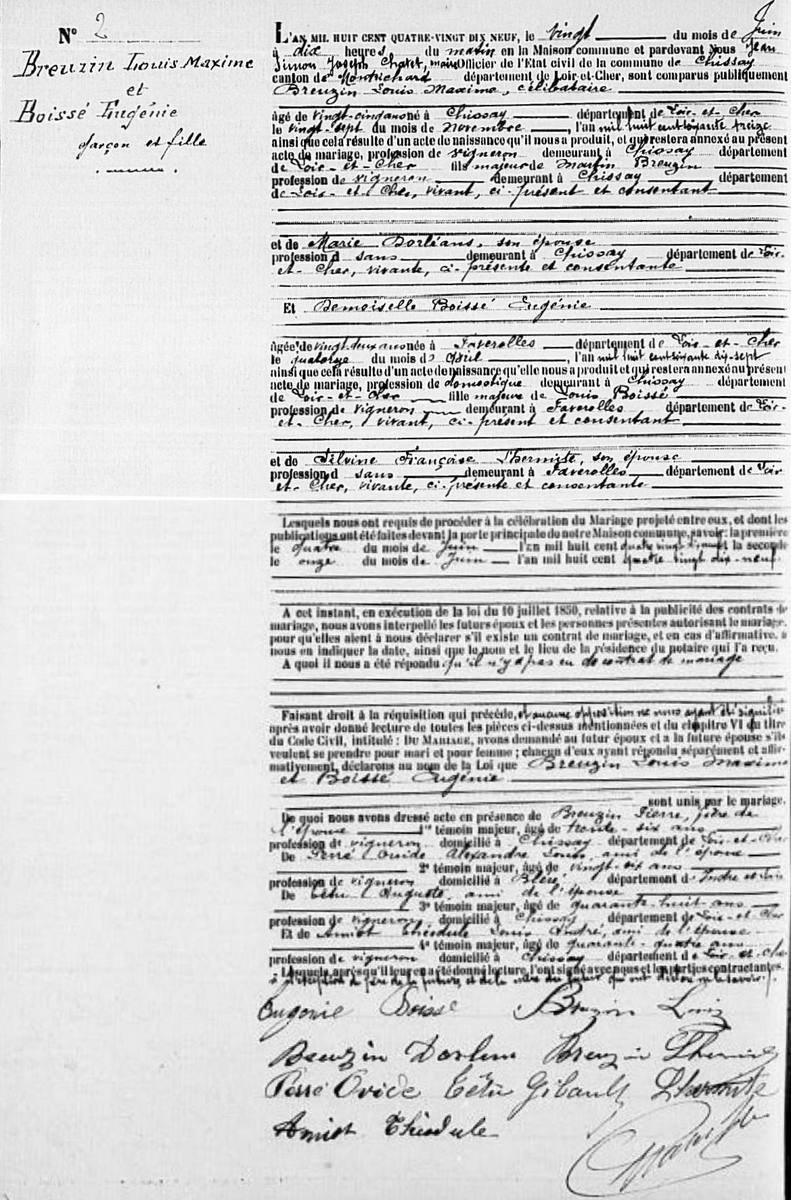 N° 2
Breuzin Louis Maxime
et
Boissé Eugénie
garçon et fille
L'AN MIL HUIT CENT QUATRE-VINGT DIX NEUF, le vingt du mois de Juin
à dix heures du matin en la Maison commune et pardevant Nous Jean
Simon Joseph Charet, maire Officier de l'Etat civil de la commune de Chissay
canton de Montrichard département de Loir-et-Cher, sont comparus publiquement
Breuzin Louis Maxime, célibataire
âgé de vingt-cinq ans né à Chissay département de Loir-et-Cher
le vingt-sept du mois de novembre, l'an mil huit cent soixante treize
ainsi que cela résulte d'un acte de naissance qu'il nous a produit, et qui restera annexé au présent
acte de mariage, profession de vigneron demeurant à Chissay département
de Loir-et-Cher fils majeur de Breuzin
profession de vigneron demeurant à Chissay département
de Loir-et-Cher, vivant, ci-présent et consentant
et de Marie Dorléans, son épouse
profession d sans demeurant à Chissay département de Loir-
et-Cher, vivante, ci-présente et consentante
Et Demoiselle Boissé Eugénie
âgée de vingt-deux ans née à Faverolles département de Loir-et-Cher
le quatorze du mois d'Avril, l'an mil huit cent soixante dix-sept
ainsi que cela résulte d'un acte de naissance qu'elle nous a produit et qui restera annexé au présent
acte de mariage, profession de domestique demeurant à Chissay département
de Loir-et-Cher fille majeure de Louis Boissé
profession de vigneron demeurant à Faverolles département de Loir-
et-Cher, vivant, ci-présent et consentant
et de Silvine Françoise Lhermite, son épouse
profession d sans demeurant à Faverolles département de Loir-
et-Cher, vivante, ci-présente et consentante
Lesquels nous ont requis de procéder à la célébration du Mariage projeté entre eux, et dont les
publications ont été faites devant la porte principale du notre Maison commune, savoir: la première
le quatre du mois de Juin l'an mil huit cent quatre vingt dix neuf la seconde
le onze du mois de Juin l'an mil huit cent quatre vingt dix-neuf
A cet instant, en exécution de la loi du 10 juillet 1850, relative à la publicité des contrats de
mariage, nous avons interpellé les futurs époux et les personnes présentes autorisant le mariage,
pour qu'elles aient à nous déclarer s'il existe un contrat de mariage, et en cas d'affirmative, à
nous en indiquer la date, ainsi que le nom et le lieu de la résidence du notaire qui l'a reçu.
A quoi il nous a été répondu qu'il n'y a pas eu de contrat de mariage
Faisant droit à la réquisition qui précède, et aucune opposition ne nous ayant été signifiée
après avoir donné lecture de toutes les pièces ci-dessus mentionnées et du chapitre VI du titre
du Code Civil, intitulé : DU MARIAGE, avons demandé au futur époux et a la future épouse s'ils
veulent se prendre pour mari et pour femme ; chacun d'eux ayant répondu séparément et affir-
mativement, déclarons au nom de la Loi que Breuzin Louis Maxime
et Boissé Eugénie
sont unis par le mariage.
De quoi nous avons dressé acte en présence de Breuzin Pierre, frère de
l'époux 1er témoin majeur, âgé de trente-six ans
profession de vigneron domicilié à Chissay département de Loir-et-Cher
De Perré Ovide Alexandre Louis, ami de l'époux
2e témoin majeur, âgé de vingt-six ans
profession de vigneron domicilié à Bléré département d'Indre et Loire
De Tétu Auguste, ami de l'épouse
3e témoin majeur, âgé de quarante-huit ans
profession de vigneron domicilié à Chissay département de Loir-et-Cher
Et de Amiot Théodule Louis André, ami de l'épouse
4e témoin majeur, âgé de quarante-quatre ans
profession de vigneron domicilié à Chissay département de Loir-et-Cher
Lesquels, après qu'il leur en a été donné lecture, l'ont signé avec nous et les parties contractantes.
à l'exception du père de la future, et de la mère du futur qui ont déclaré ne le savoir.
Eugénie Boissé Breuzin Louis
Breuzin Breuzin
Perré Ovide Tétu Gibault Lhermite
Amiot Théodule